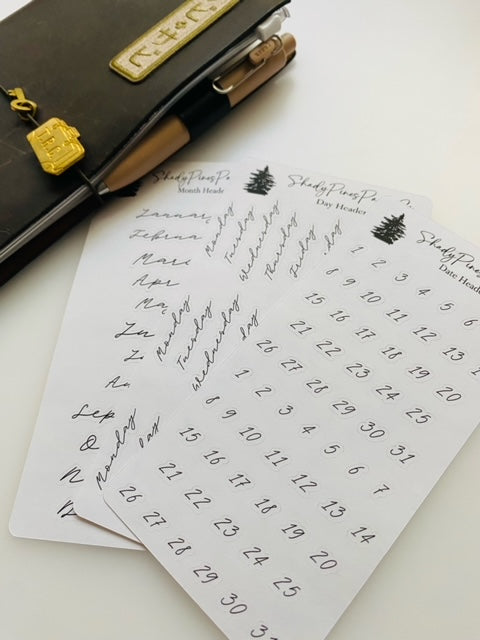 ShadyPinesPa
Month Heade
Januar
Februa
Marc
Apr
Ma
Ju
Au
Sep
O
N
ShadyPinesPa
Day Header
Monday
Tuesday
Wednesday
Thursday
Friday
day
Monday
Tuesday
Wednesday
day
Monday
day
ShadyPines
Date Head
1 2 3 4 5 6
8 9 10 11 12 13
15 16 17 18 19 20
21 22 23 24 25
26 27 28 29 30 31
1 2 3 4 5 6 7
8 9 10 11 12 13 14
15 16 17 18 19 20
21 22 23 24 25
26 27 28 29 30 31